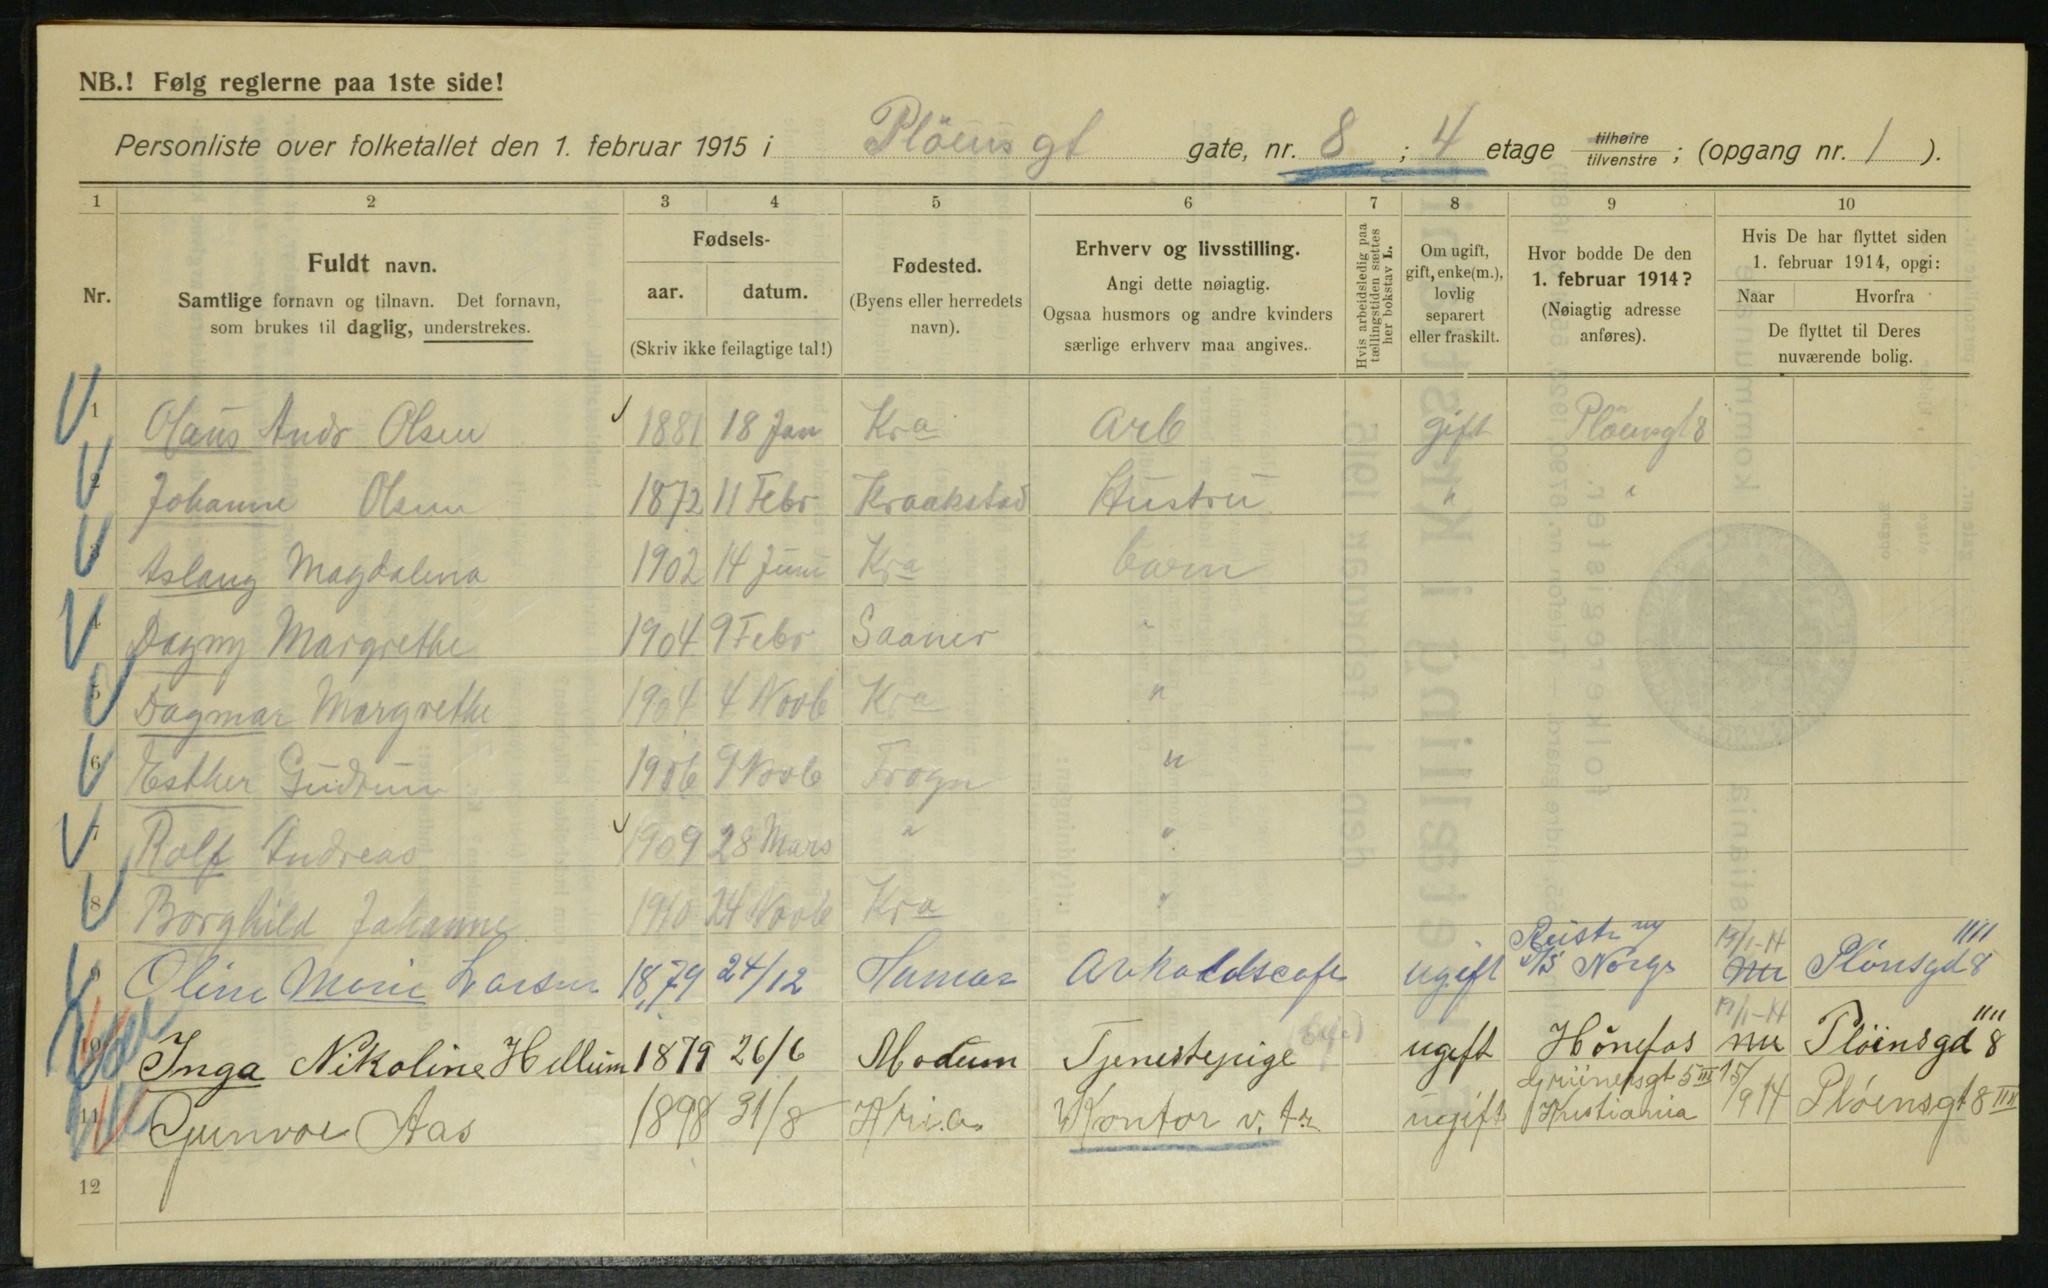 NB.! Følg reglerne paa 1ste side!
Personliste over folketallet den 1. februar 1915 i Plöensgt gate, nr. 8 ; 4 etage tilhøire/tilvenstre ; (opgang nr. 1 ).
1 2 3 4 5 6 7 8 9 10
Nr.
Fuldt navn.
Samtlige fornavn og tilnavn. Det fornavn,
som brukes til daglig, understrekes.
Fødsels-
aar. datum.
(Skriv ikke feilagtige tal!)
Fødested.
(Byens eller herredets
navn).
Erhverv og livsstilling.
Angi dette nøiagtig.
Ogsaa husmors og andre kvinders
særlige erhverv maa angives.
Hvis arbeidsledig paa
tællingstiden sættes
her bokstav L.
Om ugift,
gift, enke(m.),
lovlig
separert
eller fraskilt.
Hvor bodde De den
1. februar 1914?
(Nøiagtig adresse
anføres).
Hvis De har flyttet siden
1. februar 1914, opgi:
Naar Hvorfra
De flyttet til Deres
nuværende bolig.
1 Olaus Andr Olsen 1881 18 Jan Kra Arb gift Plöensgt 8
2 Johanne Olsen 1872 11 Febr Kraakstad Hustru " "
3 Aslaug Magdalena 1902 14 Juni Kra barn
4 Dagny Margrethe 1904 9 Febr Saaner "
5 Dagmar Margrethe 1904 4 Novb Kra "
6 Esther Gudrun 1906 9 Novb Frogn "
7 Rolf Andreas 1909 28 Mars " "
8 Borghild Johanne 1910 24 Novb Kra "
9 Oline Marie Larsen 1879 24/12 Hamar ugift Norge 19/1-14 Plönsgd 8 IIII
10 Inga Nikoline Hellum 1879 26/6 Modum Tjenestepige (Cafe) ugift Hönefos 19/1-14 Plöinsgd 8 IIII
11 Gunvor Aas 1898 31/8 Kria. Kontor ugift Grünersgt 5 III Kristiania 15/ 1914 Plöensgt 8 IIII
12